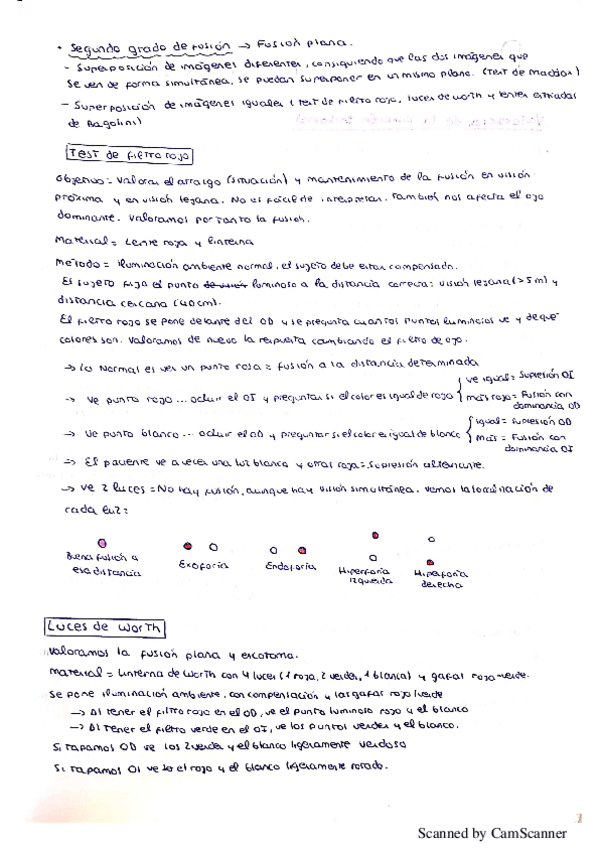 • Segundo grado de fusión → Fusión plana.
- Superposición de imágenes diferentes, consiguiendo que las dos imágenes que
se ven de forma simultánea, se puedan superponer en un mismo plano. (Test de Maddox)
- Superposición de imágenes iguales (test de filtro rojo, luces de worth y lentes estriadas
de Bagolini)
Test de filtro rojo
Objetivo = valorar el arraigo (situación) y mantenimiento de la fusión en visión
próxima y en visión lejana. No es fácil de interpretar. También nos afecta el ojo
dominante. Valoramos por tanto la fusión.
Material = Lente roja y linterna
Método = iluminación ambiente normal, el sujeto debe estar compensado.
El sujeto fija el punto luminoso a la distancia correcta: visión lejana (>5m) y
distancia cercana (40cm).
El filtro rojo se pone delante del OD y se pregunta cuantos puntos luminosos ve y de que
colores son. Valoramos de nuevo la respuesta cambiando el filtro de ojo.
→ Lo normal es ver un punto rosa = fusión a la distancia determinada
→ Ve punto rojo ... ocluir el OI y preguntar si el color es igual de rojo { ve igual = Supresión OI
más rojo = Fusión con
dominancia OD
→ Ve punto blanco ... ocluir el OD y preguntar si el color es igual de blanco { igual = Supresión OD
más = Fusión con
dominancia OI
→ El paciente ve a veces una luz blanca y otras roja = Supresión alternante.
→ Ve 2 luces = No hay fusión, aunque hay visión simultánea. Vemos la localización de
cada luz:
Buena fusión a
esa distancia
Exoforia
Endoforia
Hiperforia
izquierda
Hiperforia
derecha
Luces de Worth
Valoramos la fusión plana y escotoma.
Material = Linterna de Worth con 4 luces (1 roja, 2 verdes, 1 blanca) y gafas rojo verde.
Se pone iluminación ambiente, con compensación y las gafas rojo/verde
→ Al tener el filtro rojo en el OD, ve el punto luminoso rojo y el blanco
→ Al tener el filtro verde en el OI, ve los puntos verdes y el blanco.
Si tapamos OD ve los 2 verdes y el blanco ligeramente verdoso
Si tapamos OI ve el rojo y el blanco ligeramente rosado.
Scanned by CamScanner